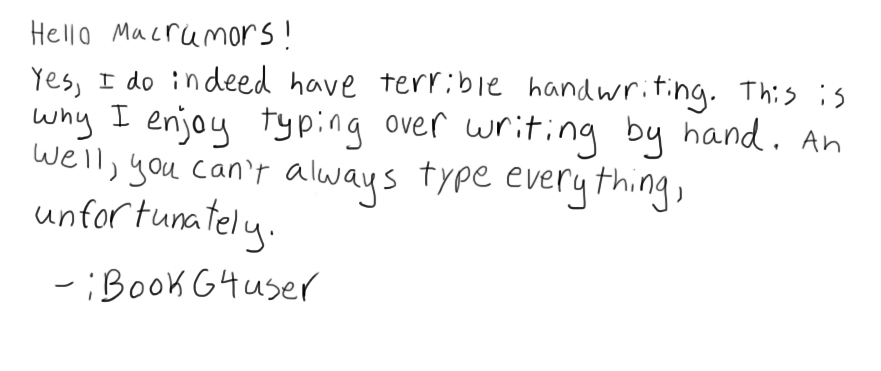 Hello Macrumors!
Yes, I do indeed have terrible handwriting. This is
why I enjoy typing over writing by hand. Ah
well, you can't always type everything,
unfortunately.
- iBookG4user